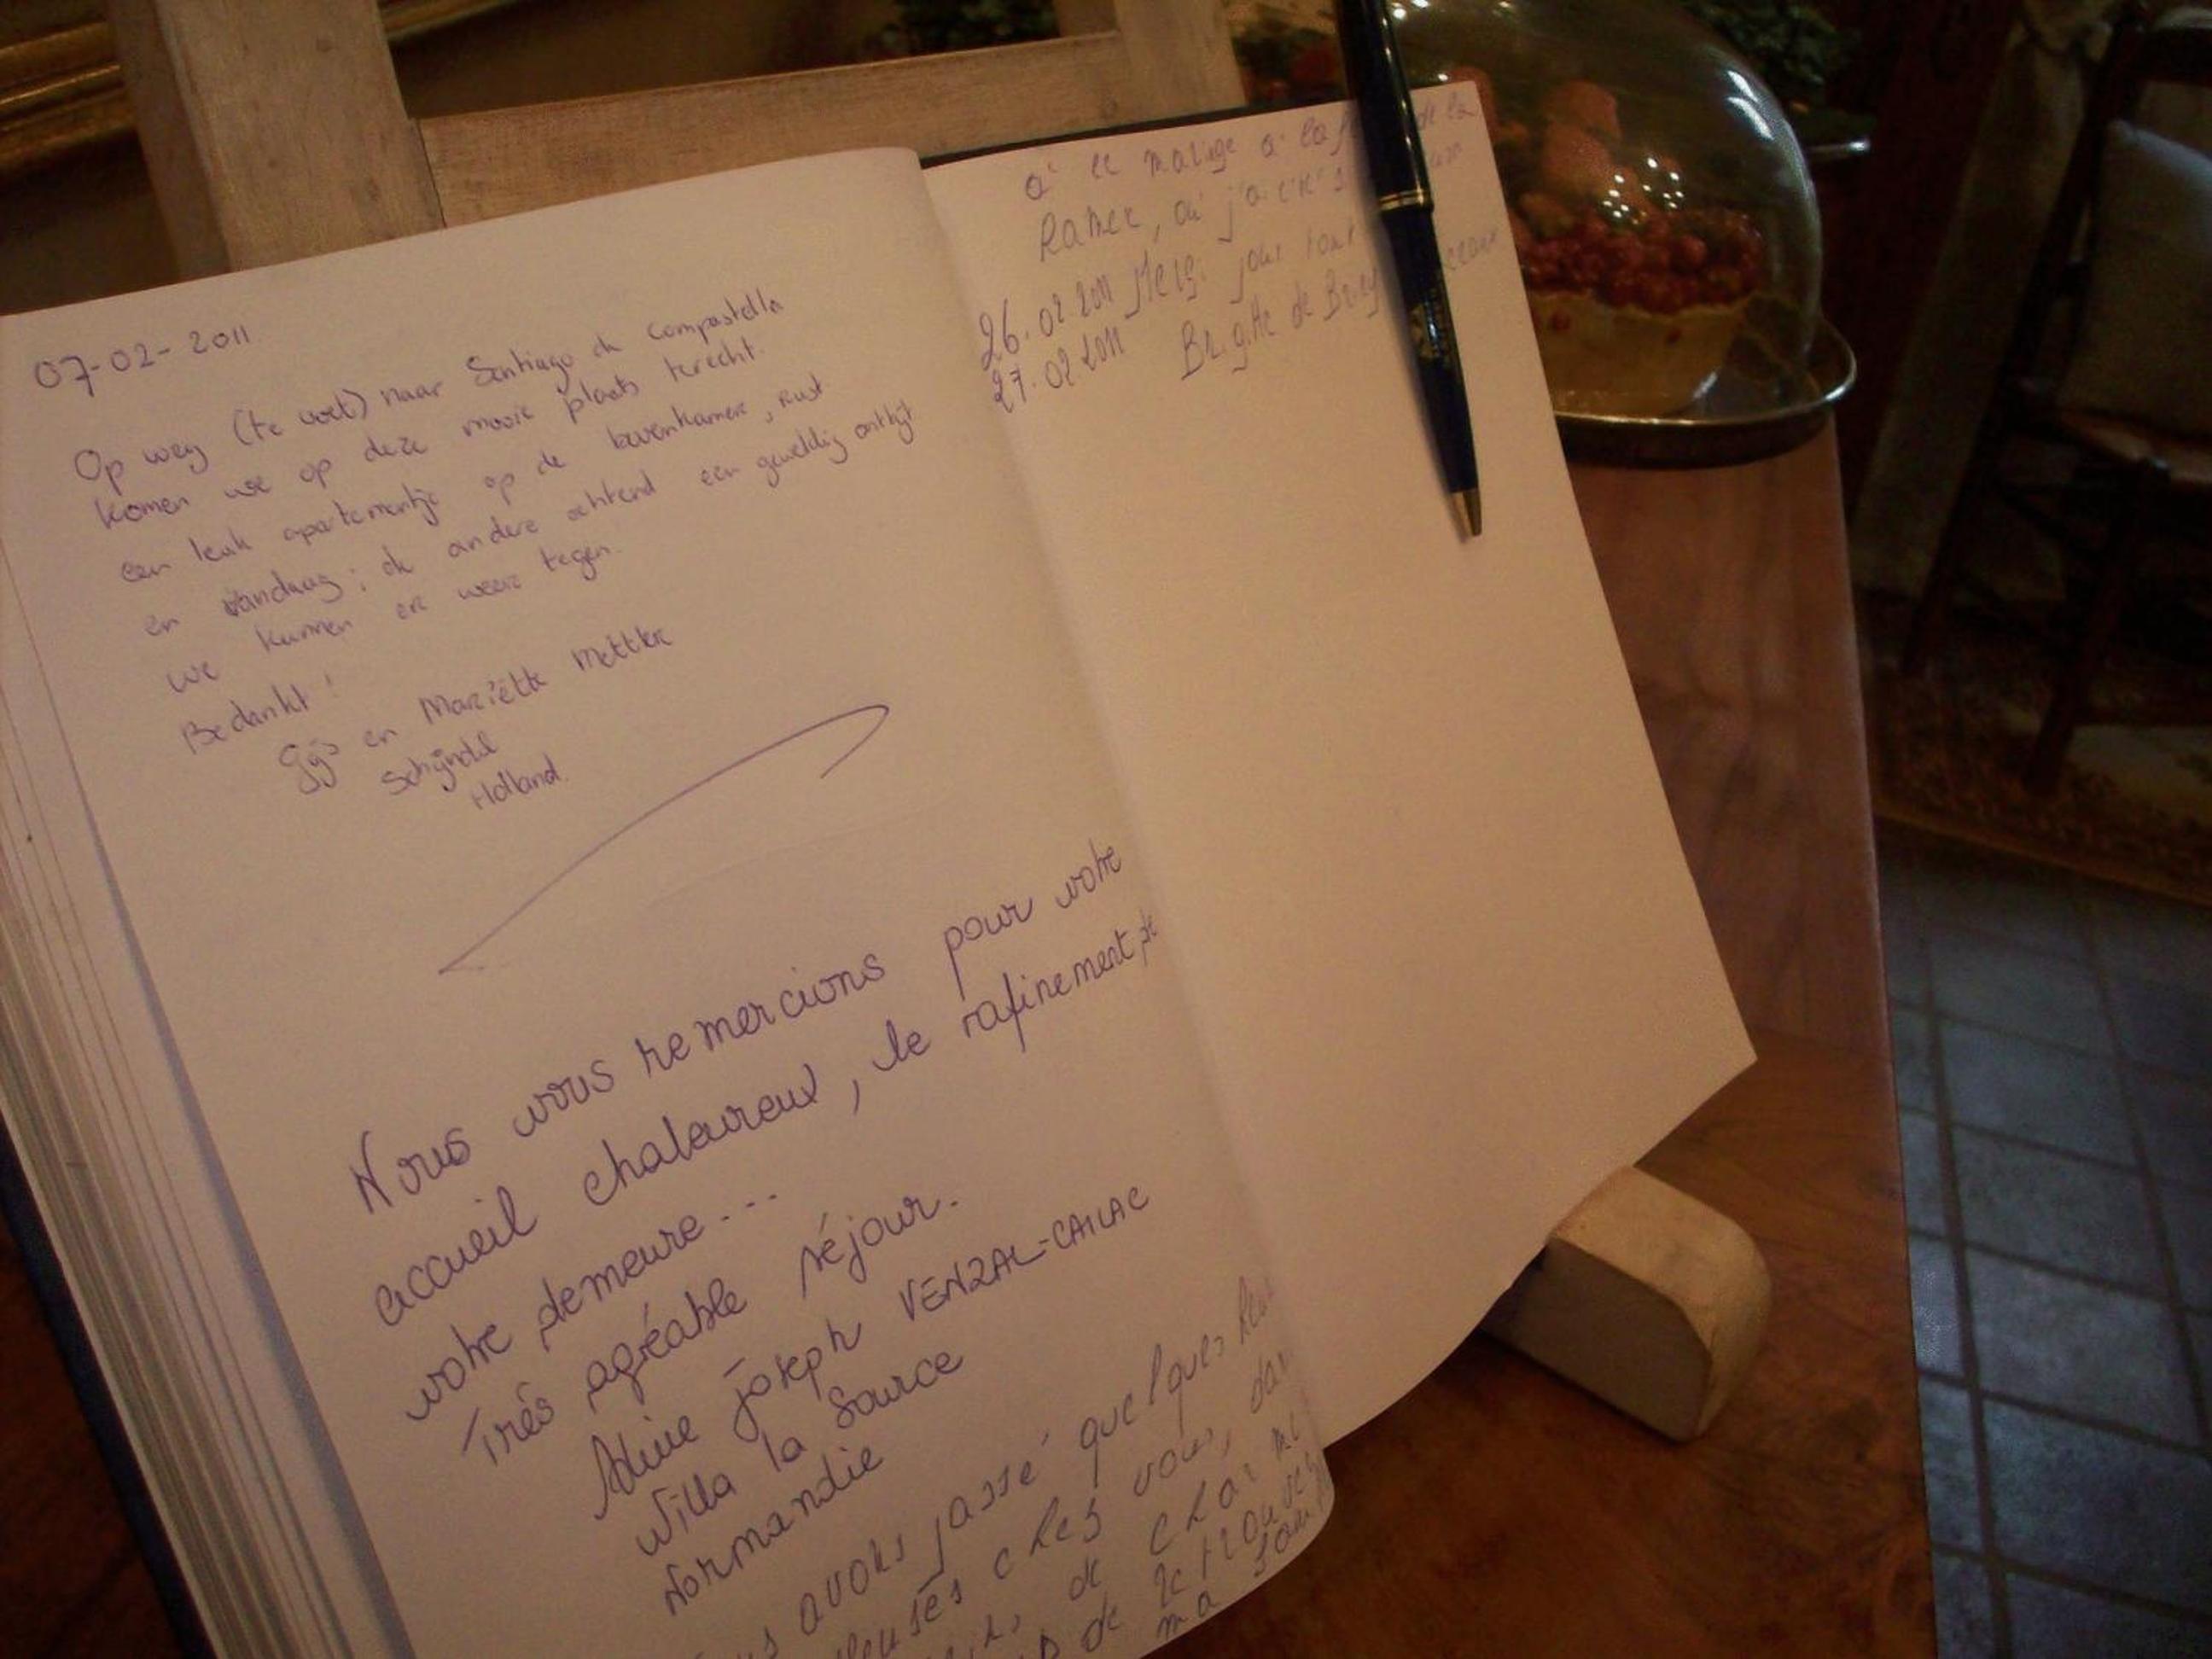 07-02-2011
Op weg (te voet) naar Santiago de Compastella
komen we op deze mooie plaats terecht.
een leuk apartementje op de bovenkamer, rust
en vandaag; de andere ochtend een geweldig ontbijt
we kunnen er weer tegen.
Bedankt!
Gijs en Mariëtte Mettler
Schijndel
Holland.
Nous vous remercions pour votre
accueil chaleureux, le rafinement de
votre demeure...
Très agréable séjour.
Aline Joseph VENZAC-CAILAC
Villa la Source
Normandie
avons passé quelques
chez vous,
de
de
ma
a
Ramer, où j'ai
26.02.2011 pour tout
27.02.2011 Brigitte de